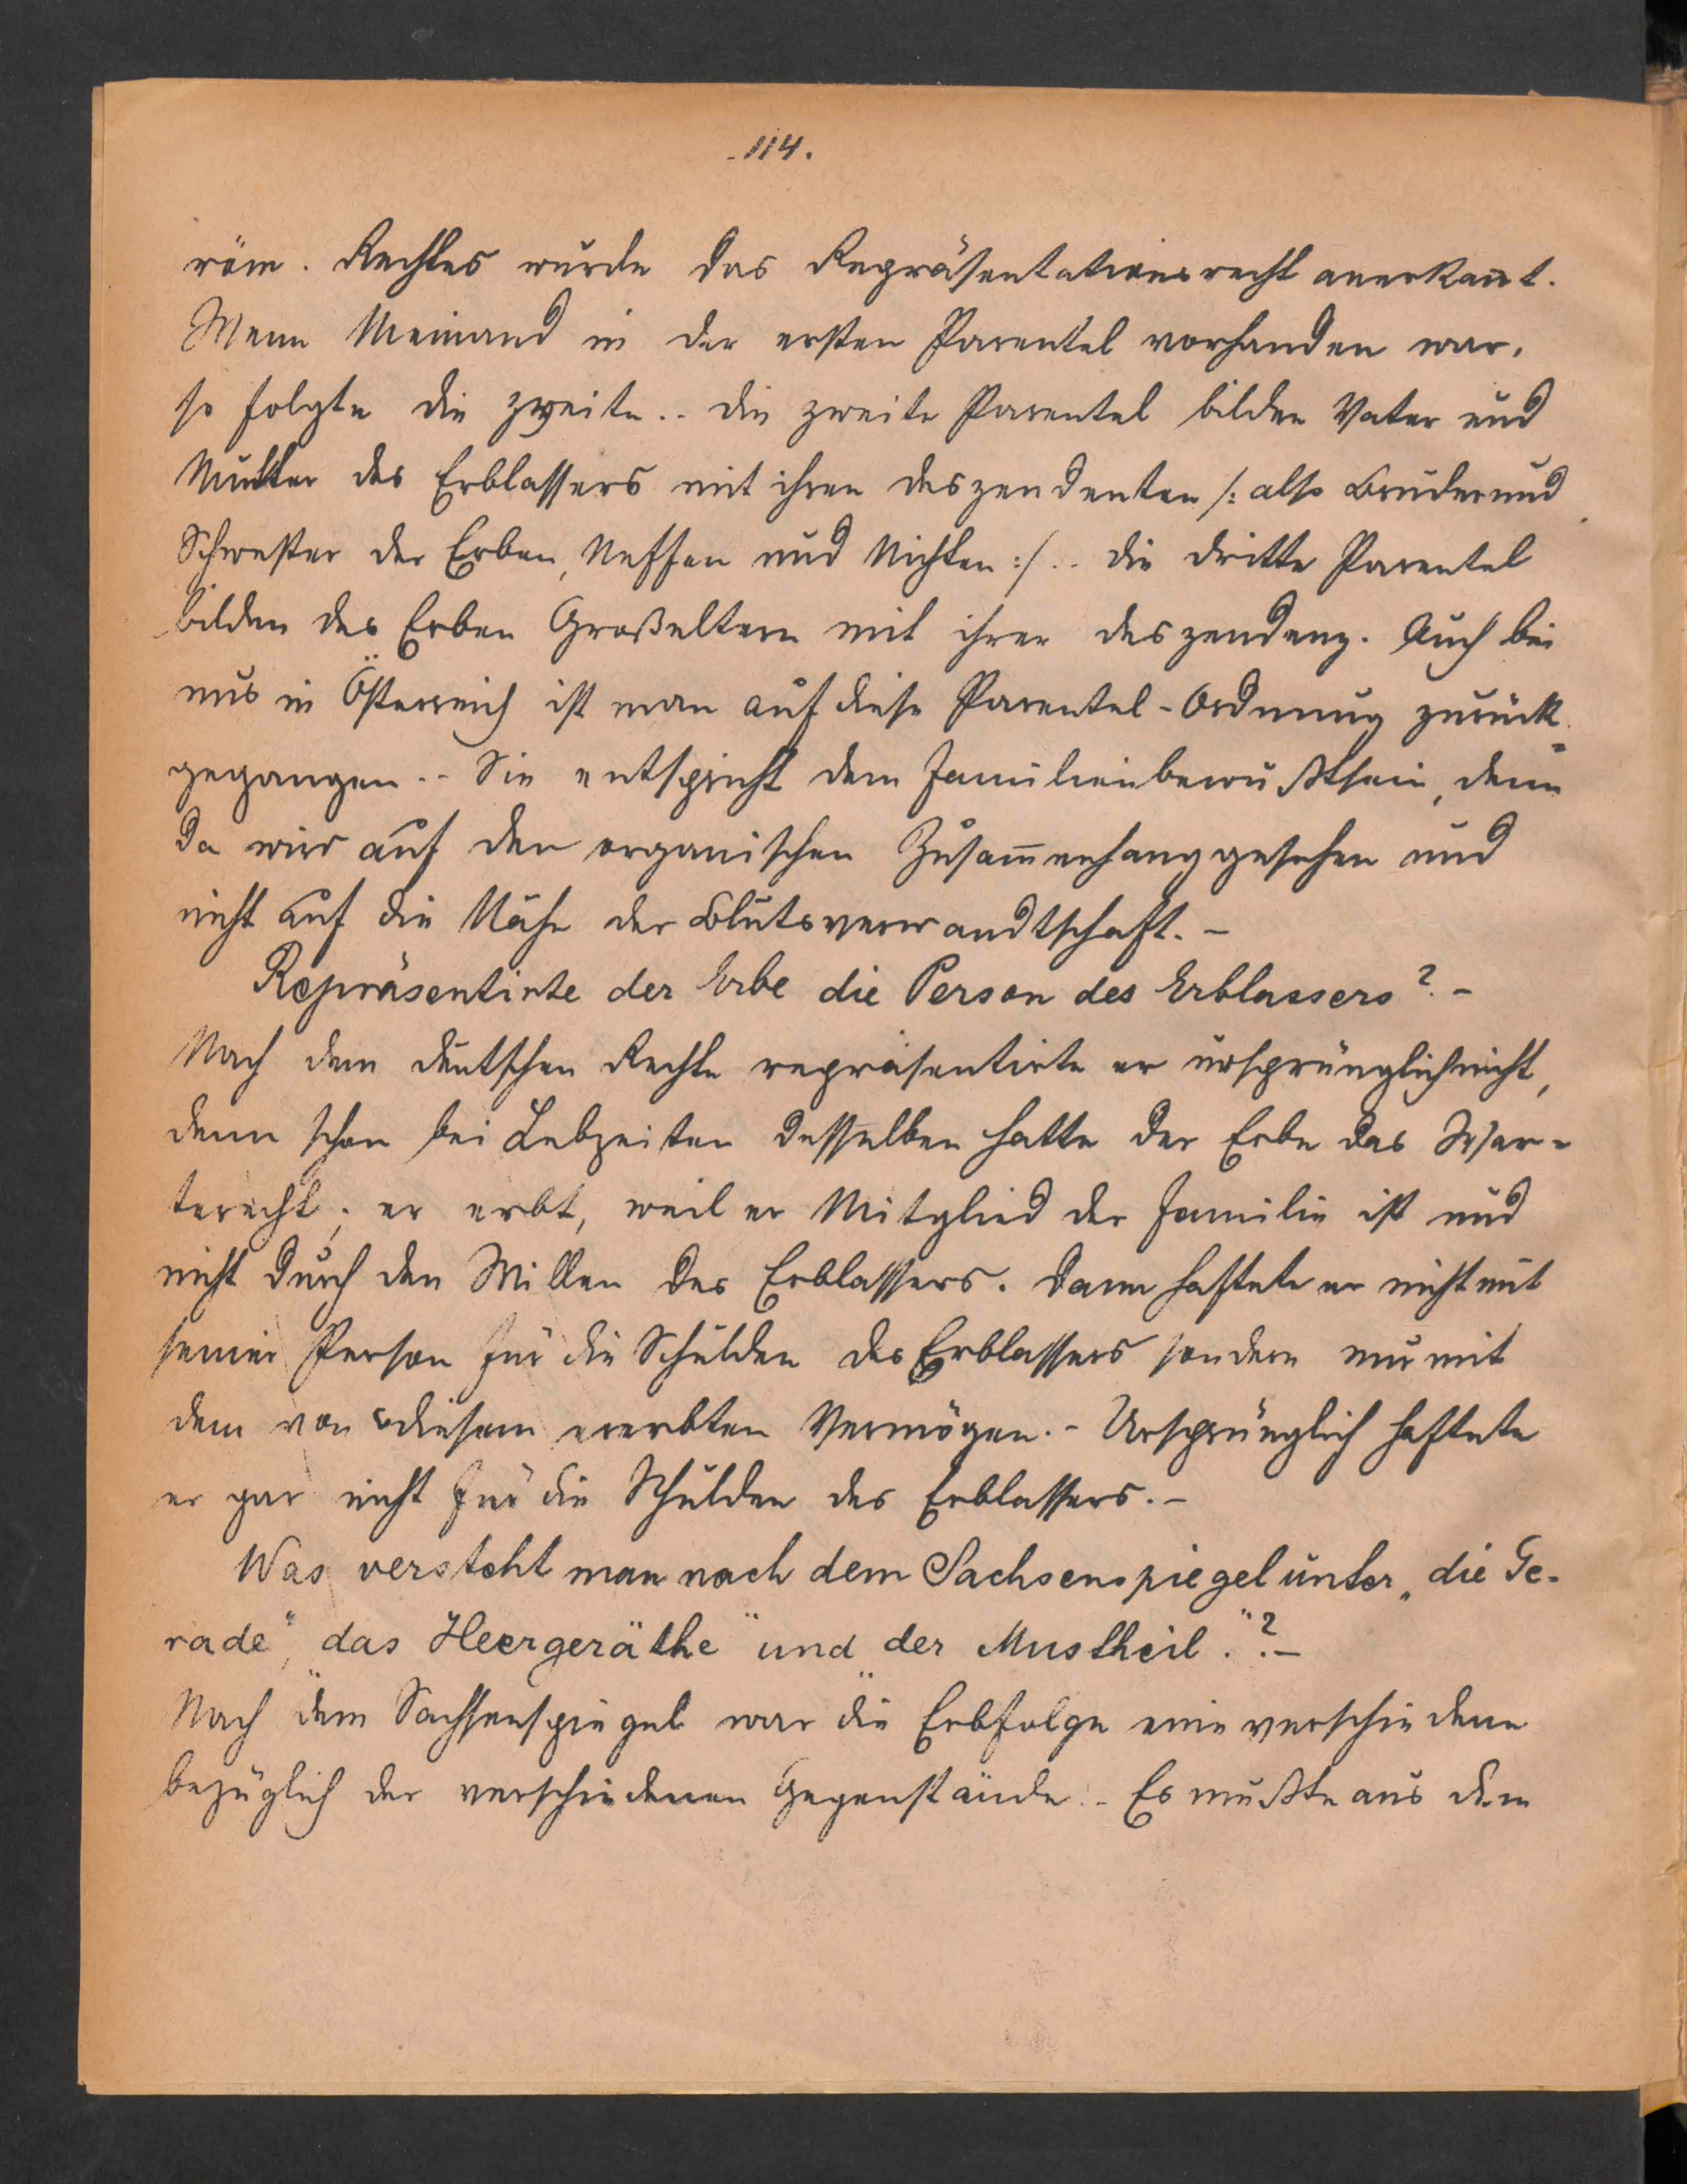 -114.
röm. Rechtes wurde das Repräsentationsrecht anerkan̄t.
Wenn Niemand in der ersten Parentel vorhanden war,
so folgte die zweite.. die zweite Parentel bilden Vater und
Mutter des Erblassers mit ihren deszendenten /: also Bruder und
Schwester der Erben, Neffen und Nichten :/.. die dritte Parentel
bilden des Erben Großeltern mit ihrer deszendenz. Auch bei
uns in Österreich ist man auf diese Parentel-Ordnung zurück=
gegangen.. Sie entspricht dem Familienbewußtsein, denn
da wird auf den organischen Zusam̄enhang gesehen und
nicht auf die Nähe der Blutsverwandtschaft. -
Repräsentirte der Erbe die Person des Erblassers?. -
Nach dem deutschen Rechte repräsentirte er ursprünglich nicht,
denn schon bei Lebzeiten desselben hatte der Erbe das War=
terecht; er erbt, weil er Mitglied der Familie ist und
nicht durch den Willen des Erblassers. dann haftete er nicht mit
seiner Person für die Schulden des Erblassers sondern nur mit
dem von diesem ererbten Vermögen. - Ursprünglich haftete
er gar nicht für die Schulden des Erblassers. -
Was versteht man nach dem Sachsenspiegel unter „die Ge-
rade", das Heergeräthe" und „der Mustheil."? -
Nach dem Sachsenspiegel war die Erbfolge eine verschiedene
bezüglich der verschiedenen Gegenstände. - Es mußte aus dem